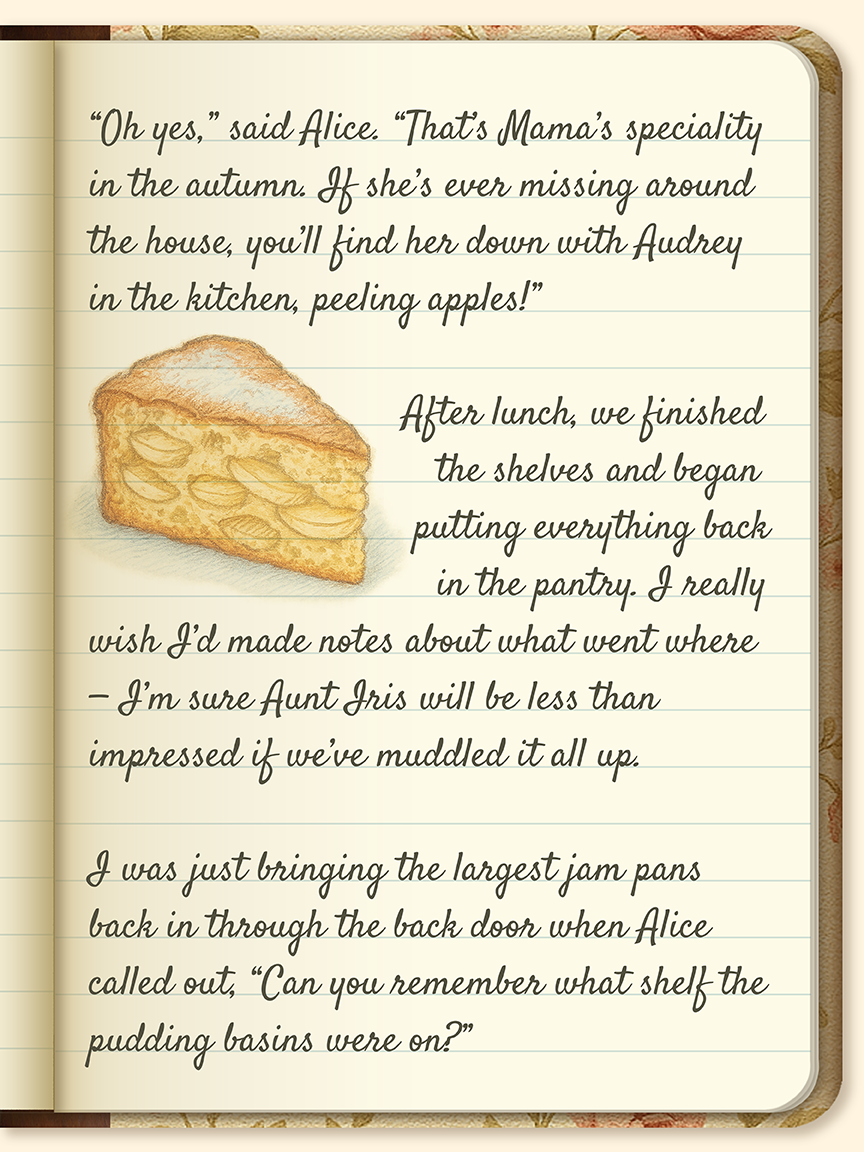 “Oh yes,” said Alice. “That’s Mama’s speciality
in the autumn. If she’s ever missing around
the house, you’ll find her down with Audrey
in the kitchen, peeling apples!”
After lunch, we finished
the shelves and began
putting everything back
in the pantry. I really
wish I’d made notes about what went where
– I’m sure Aunt Iris will be less than
impressed if we’ve muddled it all up.
I was just bringing the largest jam pans
back in through the back door when Alice
called out, “Can you remember what shelf the
pudding basins were on?”